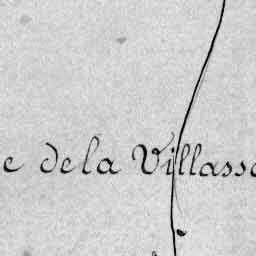 e de la Villasse